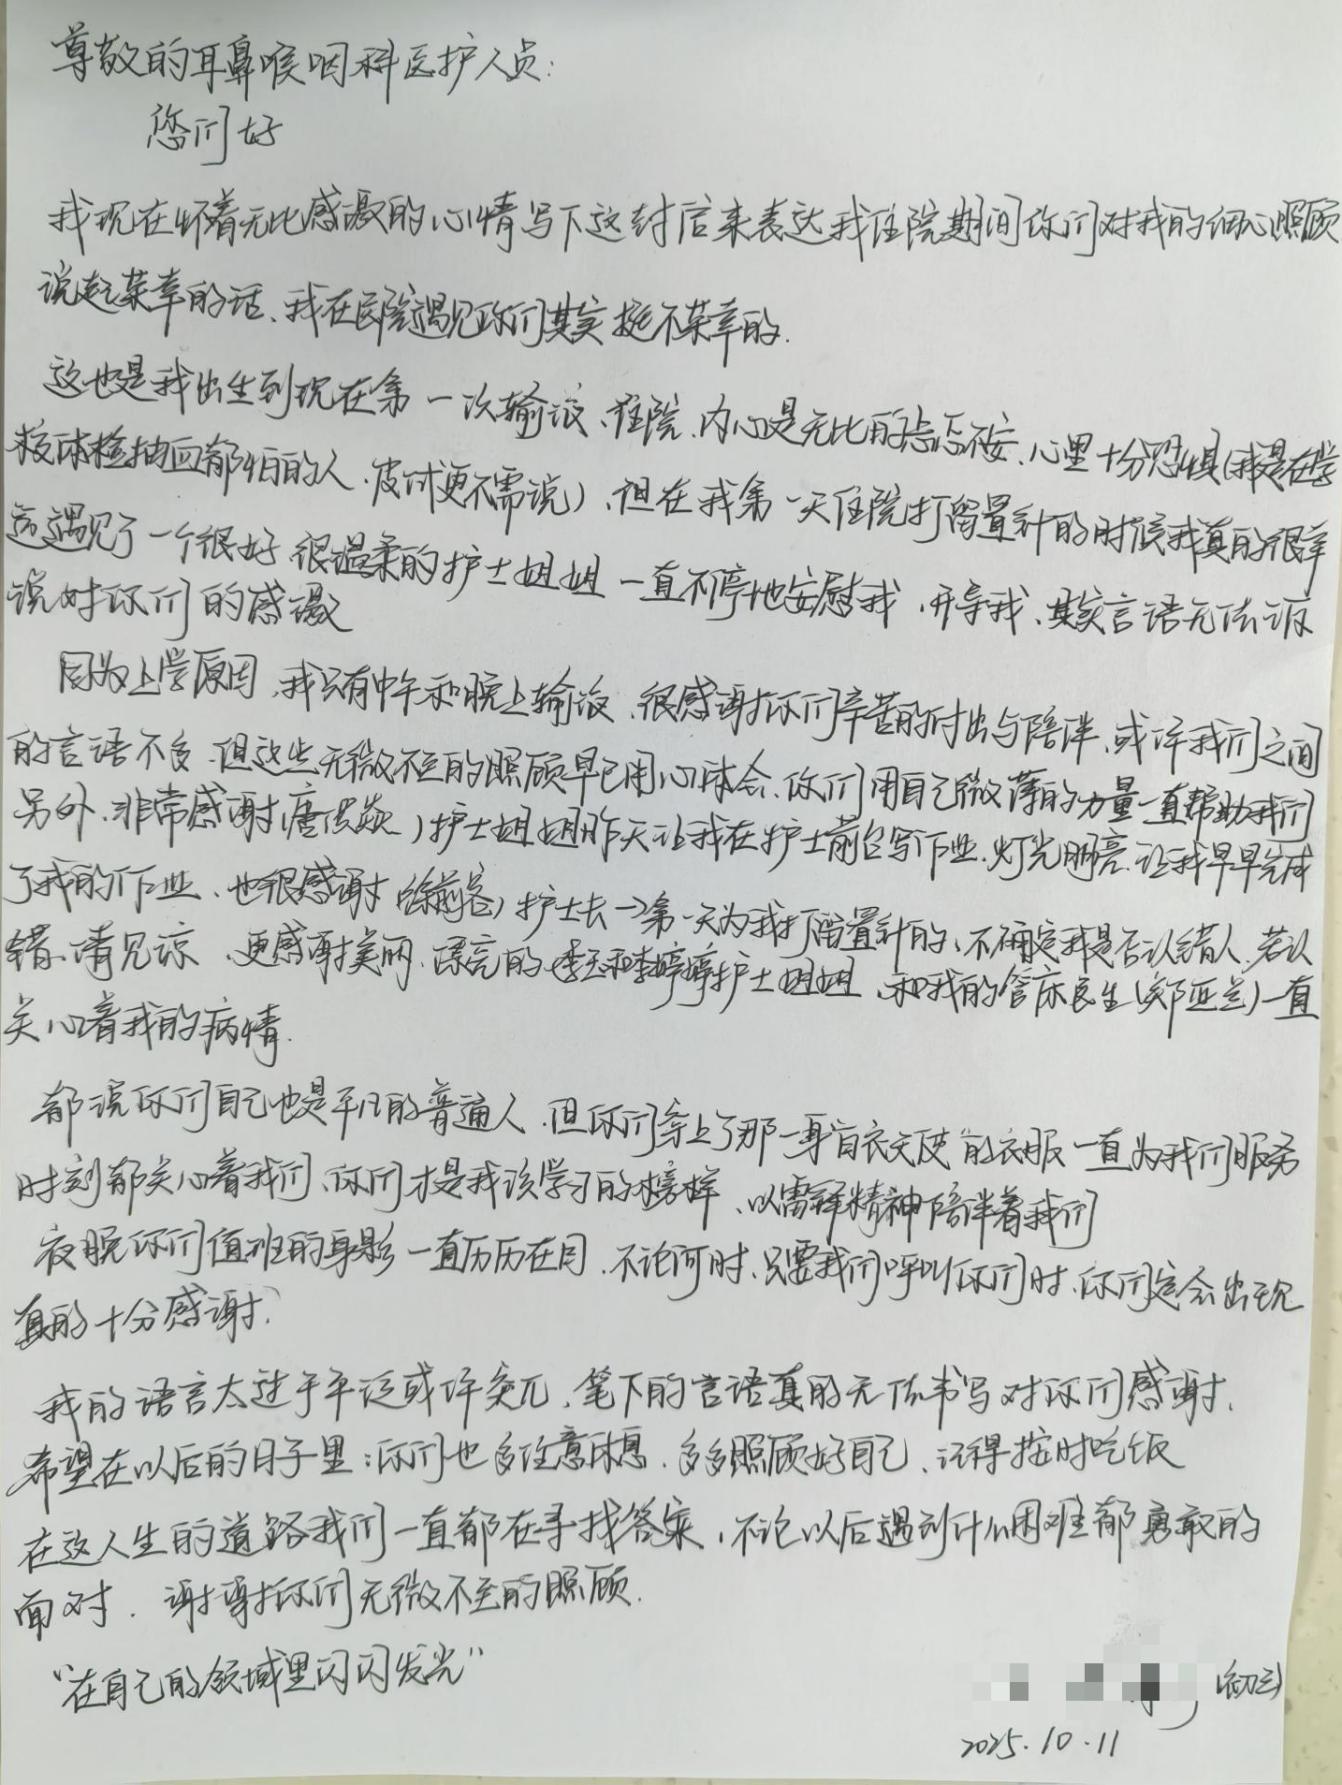 尊敬的耳鼻喉咽科医护人员:
您们好
我现在怀着无比感激的心情写下这封信来表达我住院期间你们对我的细心照顾
说起荣幸的话、我在医院遇见你们其实挺不荣幸的.
这也是我出生到现在第一次输液、住院、内心是无比的忐忑不安、心里十分恐惧(我是在学
校体检抽血都怕的人、皮试更不需说)、但在我第一天住院打留置针的时候我真的很幸
运遇见了一个很好很温柔的护士姐姐一直不停地安慰我、开导我、其实言语无法诉
说对你们的感激
因为上学原因、我只有中午和晚上输液、很感谢你们辛苦的付出与陪伴、或许我们之间
的言语不多、但这些无微不至的照顾早已用心体会、你们用自己微薄的力量一直帮助我们
另外、非常感谢(唐)护士姐姐昨天让我在护士前台写作业、灯光明亮、让我早早完成
了我的作业、也很感谢护士去→第一天为我打留置针的、不确定我是否认错人、若认
错、请见谅、更感谢美丽、漂亮的李玉和李婷婷护士姐姐、和我的管床医生(郑亚兰)一直
关心着我的病情.
都说你们自己也是平凡的普通人、但你们穿上了那一身"白衣天使"的衣服一直为我们服务
时刻都关心着我们、你们才是我该学习的榜样、以雷锋精神陪伴着我们
夜晚你们值班的身影一直历历在目、不论何时、只要我们呼叫你们时、你们定会出现
真的十分感谢.
我的语言太过于平泛或许、笔下的言语真的无法书写对你们感谢.
希望在以后的日子里:你们也多注意休息、多多照顾好自己、记得按时吃饭
在这人生的道路我们一直都在寻找答案、不论以后遇到什么困难都勇敢的
面对.谢谢你们无微不至的照顾.
"在自己的领域里闪闪发光"
(初三)
2025.10.11